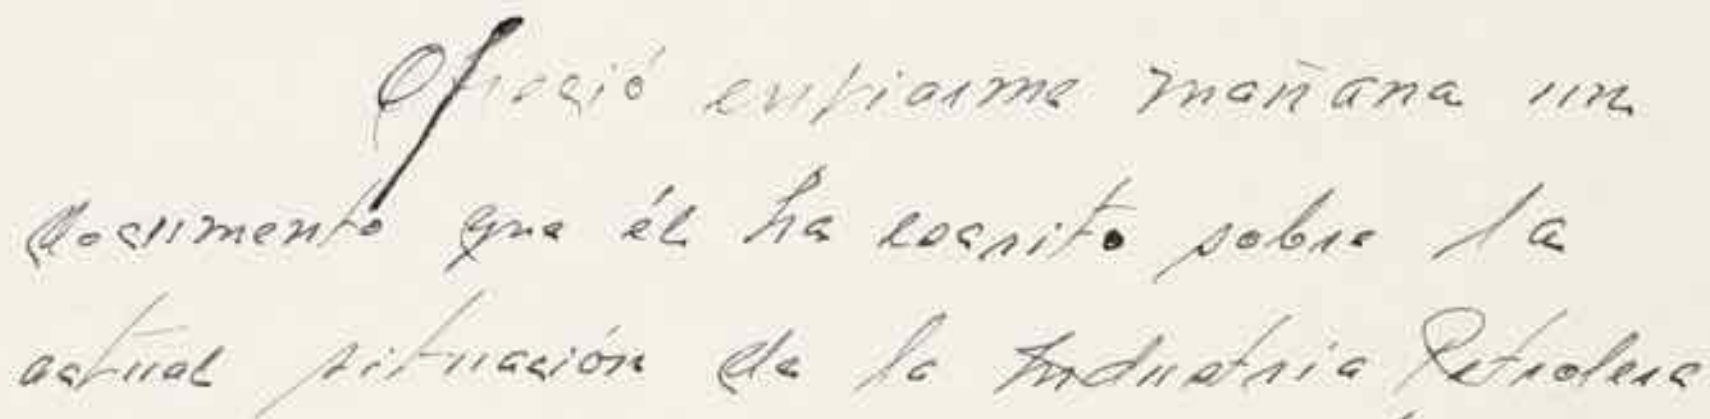 Ofreció enviarme mañana un
documento que él ha escrito sobre la
actual situación de la Industria Petrolera